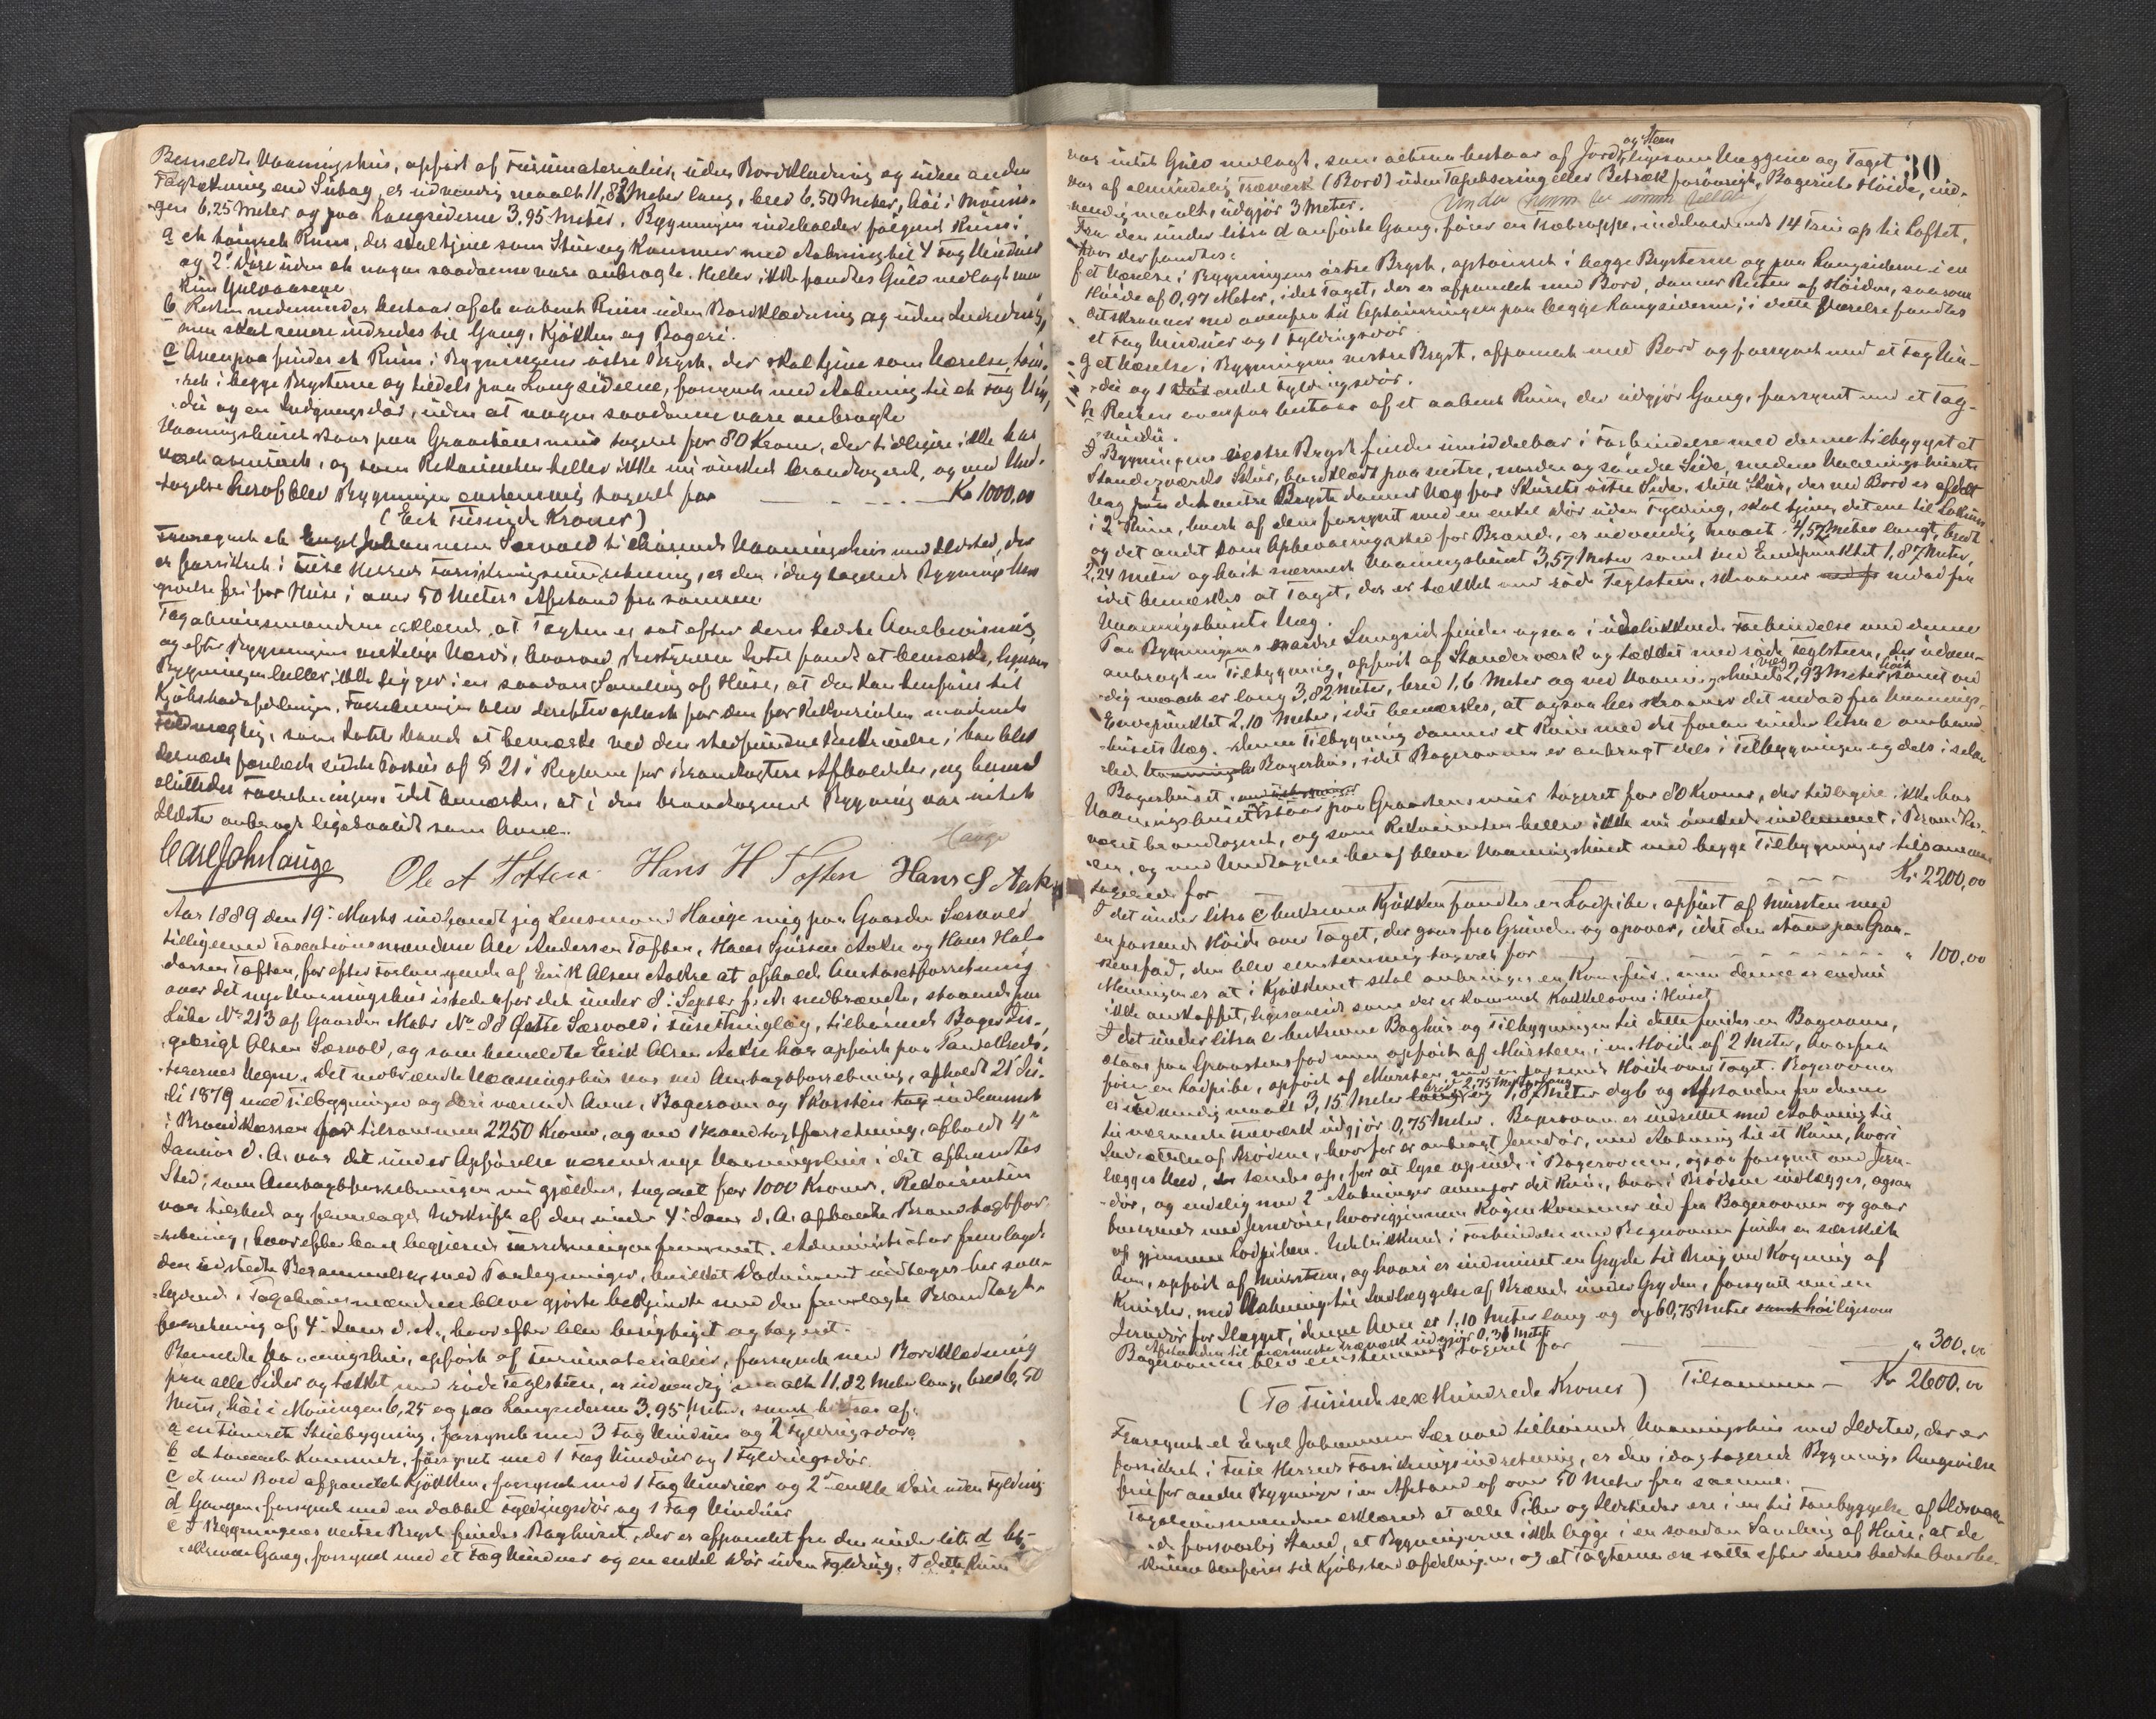 Bemeldte Vaaningshus, opført af Furumaterialier, uden Bordklædning og uden anden
Tagtækning end Sutag, er udvendig maalt 11,82 Meter lang, bred 6,50 Meter, høi i Mønnin-
gen 6,25 Meter og paa Langsiderne 3,95 Meter. Bygningen indeholder følgende Rum:
a et tømret Rum, der skal tjene som Stue og Kammer med Aabning til 4 Fag Vinduer
og 2de Døre uden at nogen saadanne vare anbragte. Heller ikke fandtes Gulv nedlagt men
kun Gulvaasene
b Resten nedenunder bestaar af et aabent Rum uden Bordklædning og uden Indredning,
men skal senere indredes til Gang, Kjøkken og Bageri.
c Ovenpaa findes et Rum i Bygningens østre Bryst, der skal tjene som Værelse, tøm-
ret i begge Brysterne og tildels paa Langsiderne, forsynet med Aabning til et Fag Vin-
due og en Indgangsdør, uden at nogen saadanne vare anbragte
Vaaningshuset staar paa Graastensmur taxeret for 80 Kroner, der tidligere ikke har
været assureret, og som Rekvirenten heller ikke nu ønsked brandtaxeret, og med Und-
tagelse heraf blev Bygningen eenstemmig taxeret for Kr 1000,00
(Eet Tusinde Kroner)
Fraregnet et Engel Johannesen Sævold tilhørende Vaaningshus med Ildsted, der
er forsikret i Fuse Herreds Forsikringsindretning, er den idag taxerede Bygning Om-
givelse fri for Huse i over 50 Meters Afstand fra samme
Taxationsmændene erklærede, at Taxten er sat efter deres bedste Overbevisning,
og efter Bygningens virkelige Værdi, hvorved Bestyreren Intet fandt at bemærke, ligesom
Bygningen heller ikke ligger i en saadan Samling af Huse, at den kan henføres til
Kjøbstadafdelingen. Forretningen blev derefter oplæst for den for Rekvirenten mødende
Fuldmægtig, som Intet havde at bemærke ved den stedfundne Beskrivelse; han blev
dernæst forelæst sidste Passus af § 21 i Reglerne for Brandtaxters Afholdelse, og hermed
sluttedes Forretningen, idet bemærkes, at i den brandtaxerede Bygning var intet
Ildsted anbragt ligesaalidt som Ovne.
Hauge
Carl Joh Hauge Ole A Toften Hans H Toften Hans S Aakre
Aar 1889 den 19de Marts indfandt sig Lensmand Hauge mig paa Gaarden Sævold
tilligemed Taxationsmændene Ole Andersen Toften, Hans Sjursen Aakre og Hans Hal-
dorsen Toften, for efter Forlangende af Erik Olsen Aakre at afholde Omtaxtforretning
over det nye Vaaningshus istedetfor det under 8de Septbr f. A. nedbrændte, staaende paa
Løbe No 213 af Gaarden Matr No 88 Østre Sævold i Fuse Thinglag, tilhørende Bager In-
gebrigt Olsen Sævold, og som bemeldte Erik Olsen Aakre har opført paa Panthaver-
tagernes Vegne. Det nedbrændte Vaaningshus var ved Omtaxtforretning, afholdt 21de Ju-
li 1879 med Tilbygninger og deri værende Ovne, Bagerovn og Skorsten indlemmet
i Brandkassen for tilsammen 2250 Kroner, og ved Brandtaxtforretning, afholdt 4de
Januar d. A. var det under Opførelse værende nye Vaaningshus i det afbrændtes
Sted, som Omtaxtforretningen nu gjælder, taxeret for 1000 Kroner. Rekvirenten
var tilstede og fremlagde Udskrift af den under 4de Janr d. A. afholdte Brandtaxtfor-
retning, hvorefter han begjærede Forretningen fremmet. Administrator fremlagde
den udstedte Berammelse med Paategninger, hvilket Dokument indtages her saa-
lydende. Taxationsmændene bleve gjorte bekjendte med den fremlagte Brandtaxt-
forretning af 4de Janr d. A., hvorefter blev besigtiget og taxeret.
Bemeldte Vaaningshus, opført af Furumaterialier, forsynet med Bordklædning
paa alle Sider og tækket med røde Teglsteen, er udvendig maalt 11,82 Meter lang, bred 6,50
Meter, høi i Mønningen 6,25 og paa Langsiderne 3,95 Meter, samt bestaar af:
a en tømret Stuebygning, forsynet med 3 Fag Vinduer og 2 Fyldingsdøre
b et tømret Kammer, forsynet med 1 Fag Vinduer og 1 Fyldingsdør.
c et med Bord afpanelet Kjøkken, forsynet med 1 Fag Vinduer og 2de enkle Døre uden Fylding
d Gangen, forsynet med en dobbel Fyldingsdør og 1 Fag Vinduer
e I Bygningens vestre Bryst findes Baghuset, der er afpanelet fra den under lit. d be-
skrevne Gang, forsynet med et Fag Vinduer og en enkel Dør uden Fylding. I dette Rum
30
var intet Gulv nedlagt, som alene bestaar af Jord og Steen, ligesom Væggene og Taget
var af almindelig Træværk (Bord) uden Tapetsering eller Betræk forøvrigt. Bageriets Høide, ud-
vendig maalt, udgjør 3 Meter.
Fra den under litra d anførte Gang, fører en Trætrappe, indeholdende 14 Trin op til Loftet,
hvor der fandtes:
f et Værelse i Bygningens østre Bryst, optømret i begge Brysterne og paa Langsiderne i en
Høide af 0,97 Meter, idet Taget, der er afpanelet med Bord, danner Resten af Høiden, saasom
det skraaner ned ovenfra til Optømringen paa begge Langsiderne; i dette Værelse fandtes
et Fag Vinduer og 1 Fyldingsdør.
g et Værelse i Bygningens vestre Bryst, afpanelet med Bord og forsynet med et Fag Vin-
due og 1 enkel Fyldingsdør.
h Resten ovenpaa bestaar af et aabent Rum, der udgjør Gang, forsynet med et Tag-
vindu.
I Bygningens vestre Bryst findes umiddelbar i Forbindelse med denne tilbygget et
Standerværks Skur, bordklædt paa vestre, nordre og søndre Side, medens Vaaningshusets
Væg paa det vestre Bryst danner Væg for Skurets østre Side. Dette Skur, der ved Bord er afdelt
i 2de Rum, hvert af dem forsynet med en enkel Dør uden Fylding, skal tjene, det ene til Lokum
og det andet som Opbevaringssted for Brænde, er udvendig maalt 4,52 Meter langt, bredt
2,24 Meter og høit nærmest Vaaningshuset 3,57 Meter samt ved Endepunktet 1,87 Meter,
idet bemærkes at Taget, der er tækket med røde Teglsteen, skraaner nedad fra
Vaaningshusets Væg.
Paa Bygningens nordre Langside findes ogsaa i udelukkende Forbindelse med denne
anbragt en Tilbygning, opført af Standerværk og tækket med røde Teglsteen, der udven-
dig maalt er lang 3,82 Meter, bred 1,6 Meter og ved Vaaningshusets Væg 2,93 Meter høit, samt ved
Endepunktet 2,10 Meter, idet bemærkes, at ogsaa her skraaner det nedad fra Vaanings-
husets Væg. Denne Tilbygning danner et Rum med det foran under litra e omhand-
lede Bagerhus, idet Bagerovnen er anbragt dels i Tilbygningen og dels i selve
Bagerhuset.
Vaaningshuset staar paa Graastensmur taxeret for 80 Kroner, der tidligere ikke har
været brandtaxeret, og som Rekvirenten heller ikke nu ønskede indlemmet i Brandkas-
sen, og med Undtagelse heraf bleve Vaaningshuset med begge Tilbygninger tilsammen
taxerede for Kr. 2200,00
I det under litra c beskrevne Kjøkken fandtes en Lodpibe, opført af Mursten med
en passende Høide over Taget, der gaar fra Grunden og opover, idet den staar paa Graa-
stensfod, den blev eenstemmig taxeret for " 100,00
Meningen er at i Kjøkkenet skal anbringes en Komfur, men denne er endnu
ikke anskaffet, ligesaalidt som der er kommet Kakkelovne i Huset
I det under litra e beskrevne Baghus og Tilbygningen til dette findes en Bagerovn,
staar paa Graastensfod men opført af Mursteen i en Høide af 2 Meter, hvorfra
fører en Lodpibe, opført af Mursten med en passende Høide over Taget. Bagerovnen
er udvendig maalt 3,15 Meter lang, bred 2,75 Meter og 1,87 Meter dyb og Afstanden fra denne
til nærmeste Træværk udgjør 0,75 Meter. Bagerovnen er indrettet med Aabning til
Indsættelse af Brødene, hvorfor er anbragt Jerndør, med Aabning til et Rum, hvori
lægges Ved, der tændes op, for at lyse op inde i Bagerovnen, ogsaa forsynet med Jern-
dør, og endelig med 2de Aabninger ovenfor det Rum, hvori Brødene indlægges, ogsaa
forsynede med Jerndøre, hvorigjennem Røgen kommer ud fra Bagerovnen og gaar
op gjennem Lodpiben. Udelukkende i Forbindelse med Bagerovnen findes en særskilt
Ovn, opført af Mursteen, og hvori er indmuret en Gryde til Brug ved Kogning af
Kringler, med Aabning til Indlæggelse af Brænde under Gryden, forsynet med en
Jerndør for Ilægget, denne Ovn er 1,10 Meter lang og dyb 0,75 Meter ligesom
Afstanden til nærmeste Træværk udgjør 0,31 Meter
Bagerovnen blev eenstemmig taxeret for " 300,00
Tilsammen — Kr 2600,00
(To Tusinde sex Hundrede Kroner)
Fraregnet et Engel Johannesen Sævold tilhørende Vaaningshus med Ildsted, der er
forsikret i Fuse Herreds Forsikringsindretning, er den idag taxerede Bygnings Omgivelse
fri for andre Bygninger i en Afstand af over 50 Meter fra samme.
Taxationsmændene erklærede at alle Piber og Ildsteder ere i en til Forebyggelse af Ildsvaa-
de forsvarlig Stand, at Bygningerne ikke ligge i en saadan Samling af Huse, at de
kunne henføres til Kjøbstadafdelingen, og at Taxterne ere satte efter deres bedste Overbe-